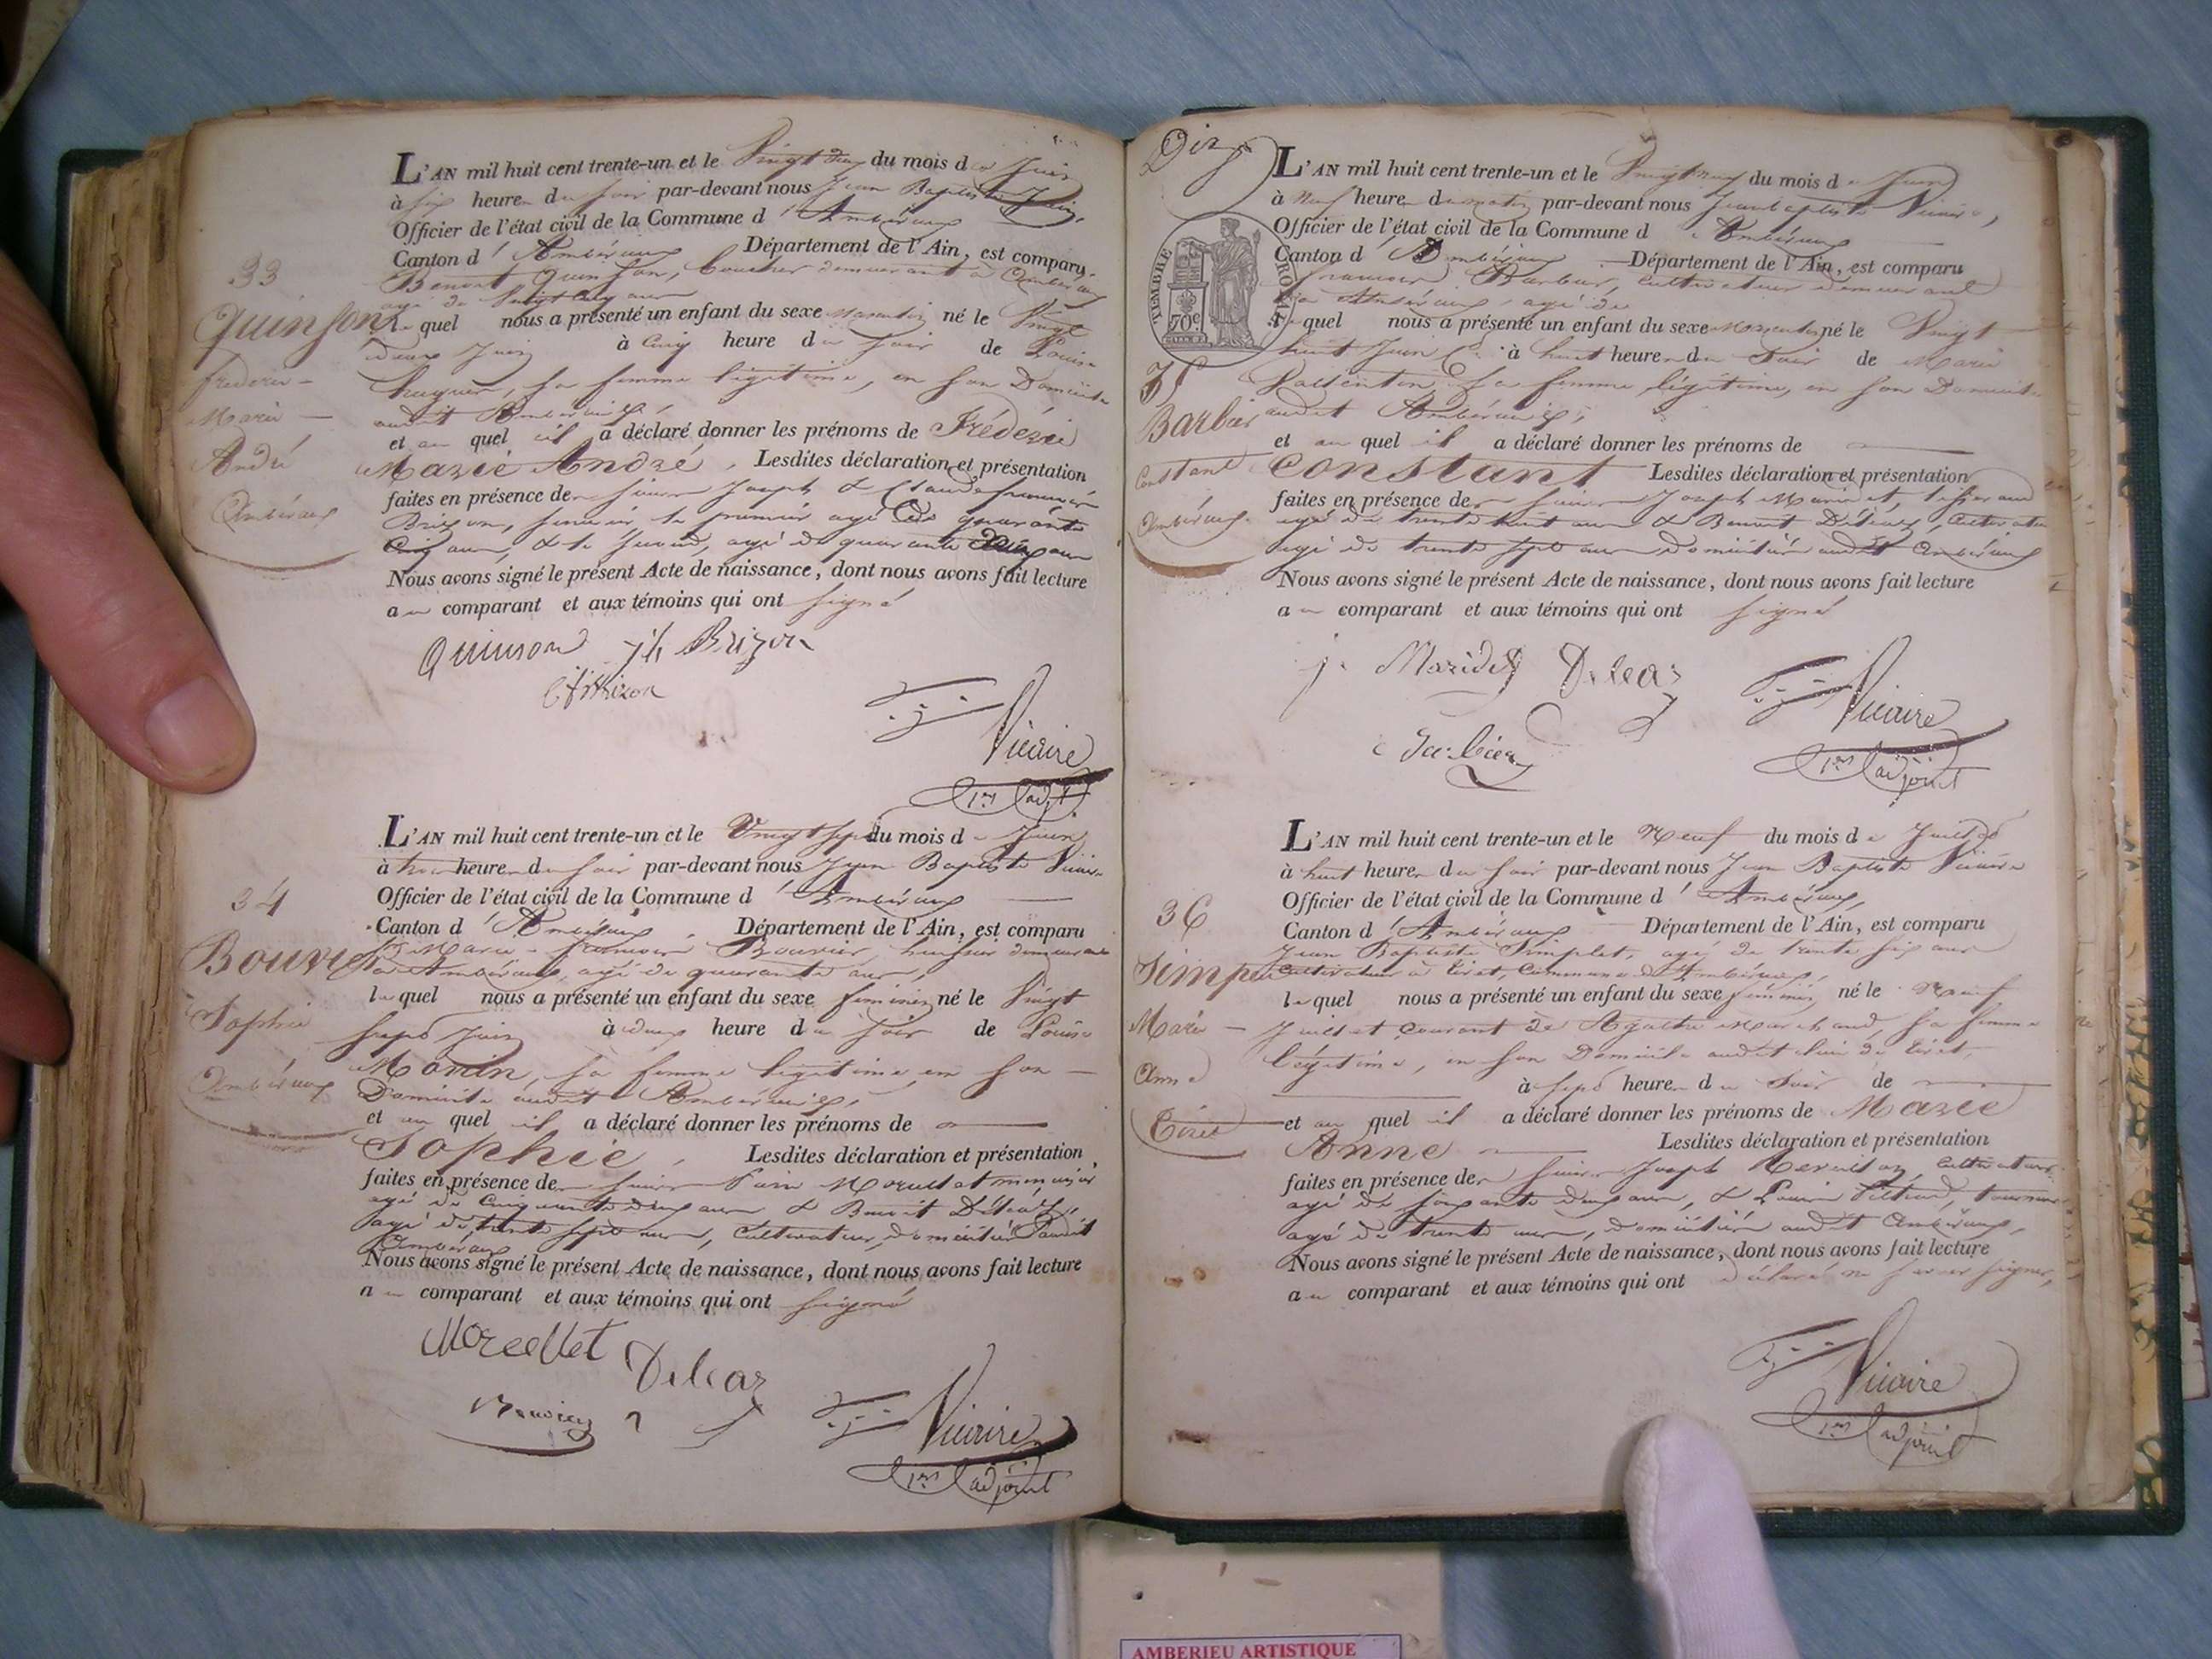 33
Quinson
frédéric
Marie
André
Ambérieux
L'AN mil huit cent trente-un et le Vingt deux du mois de Juin
à six heures du soir par-devant nous Jean Baptiste
Officier de l'état civil de la Commune d'Ambérieux
Canton d'Ambérieux Département de l'Ain, est comparu
Benoit Quinson, boucher demeurant à Ambérieux
agé de vingt cinq ans
lequel nous a présenté un enfant du sexe Masculin né le Vingt
deux Juin à Cinq heure du soir de Louise
sa femme légitime, en son Domicile
audit Ambérieux,
et auquel il a déclaré donner les prénoms de Frédéric
Marie André. Lesdites déclaration et présentation
faites en présence des sieurs Joseph & Claude françois
Brizon, le premier agé de quarante
cinq ans, & le second, agé de quarante ans
Nous avons signé le présent Acte de naissance, dont nous avons fait lecture
au comparant et aux témoins qui ont signé
Quinson Jh Brizon
Brizon
Vicaire
1er adjt
34
Bouvier
Sophie
Ambérieux
L'AN mil huit cent trente-un et le Vingt sept du mois de Juin
à trois heures du soir par-devant nous Jean Baptiste Vicaire
Officier de l'état civil de la Commune d'Ambérieux
Canton d'Ambérieux Département de l'Ain, est comparu
Marie françois Bouvier, huissier demeurant
à Ambérieux, agé de quarante ans,
lequel nous a présenté un enfant du sexe féminin né le Vingt
sept Juin à deux heure du soir de Louise
Morin, sa femme légitime en son
Domicile audit Ambérieux,
et auquel il a déclaré donner les prénoms de
Sophie, Lesdites déclaration et présentation
faites en présence des sieurs Morcellet menuisier
agé de Cinquante deux ans & Benoit Déléaz,
agé de trente sept ans, cultivateur, domiciliés audit
Ambérieux
Nous avons signé le présent Acte de naissance, dont nous avons fait lecture
au comparant et aux témoins qui ont signé
Morcellet Deleaz
Bouvier Vicaire
1er adjoint
Dix
TIMBRE ROYAL
70c
35
Barbier
Constant
Ambérieux
L'AN mil huit cent trente-un et le Vingt neuf du mois de Juin
à Neuf heures du matin par-devant nous Jean baptiste Vicaire,
Officier de l'état civil de la Commune d'Ambérieux
Canton d'Ambérieux Département de l'Ain, est comparu
françois Barbier, cultivateur demeurant
à Ambérieux, agé de
lequel nous a présenté un enfant du sexe Masculin né le Vingt
huit Juin à huit heures du Soir de Marie
sa femme légitime, en son Domicile
audit Ambérieux,
et auquel il a déclaré donner les prénoms de
Constant Lesdites déclaration et présentation
faites en présence des sieurs Joseph Maridet, tisserand
agé de trente huit ans & Benoit Déléaz, cultivateur
agé de trente sept ans domiciliés audit Ambérieux
Nous avons signé le présent Acte de naissance, dont nous avons fait lecture
au comparant et aux témoins qui ont signé
j. Maridet Deleaz Vicaire
Barbier 1er adjoint
36
Simplet
Marie
Anne
Tiret
L'AN mil huit cent trente-un et le Neuf du mois de Juillet
à huit heures du soir par-devant nous Jean Baptiste Vicaire
Officier de l'état civil de la Commune d'Ambérieux,
Canton d'Ambérieux Département de l'Ain, est comparu
Jean Baptiste Simplet, agé de trente six ans
Cultivateur à Tiret, Commune d'Ambérieux,
lequel nous a présenté un enfant du sexe féminin né le Neuf
Juillet Courant de Agathe Marchand, sa femme
légitime, en son Domicile audit lieu de Tiret,
à sept heures du Soir de
et auquel il a déclaré donner les prénoms de Marie
Anne Lesdites déclaration et présentation
faites en présence des sieurs Joseph cultivateur
agé de soixante deux ans, & Louis tourneur
agé de trente ans, domiciliés audit Ambérieux,
Nous avons signé le présent Acte de naissance, dont nous avons fait lecture
au comparant et aux témoins qui ont déclaré ne savoir signer,
Vicaire
1er adjoint
AMBERIEU ARTISTIQUE